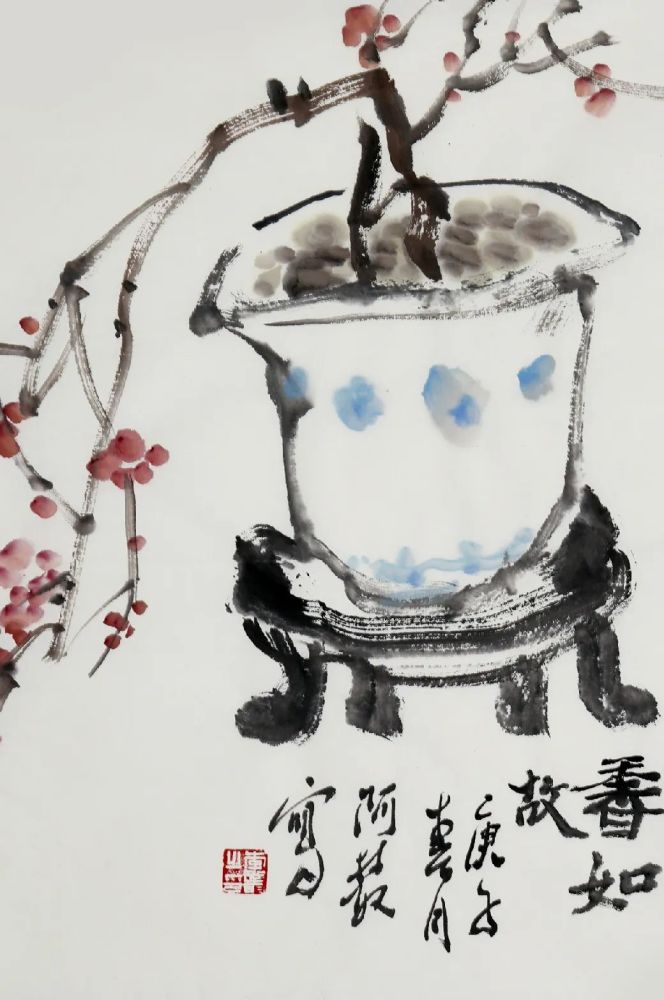 香如
故
庚子
春月
阿
寫